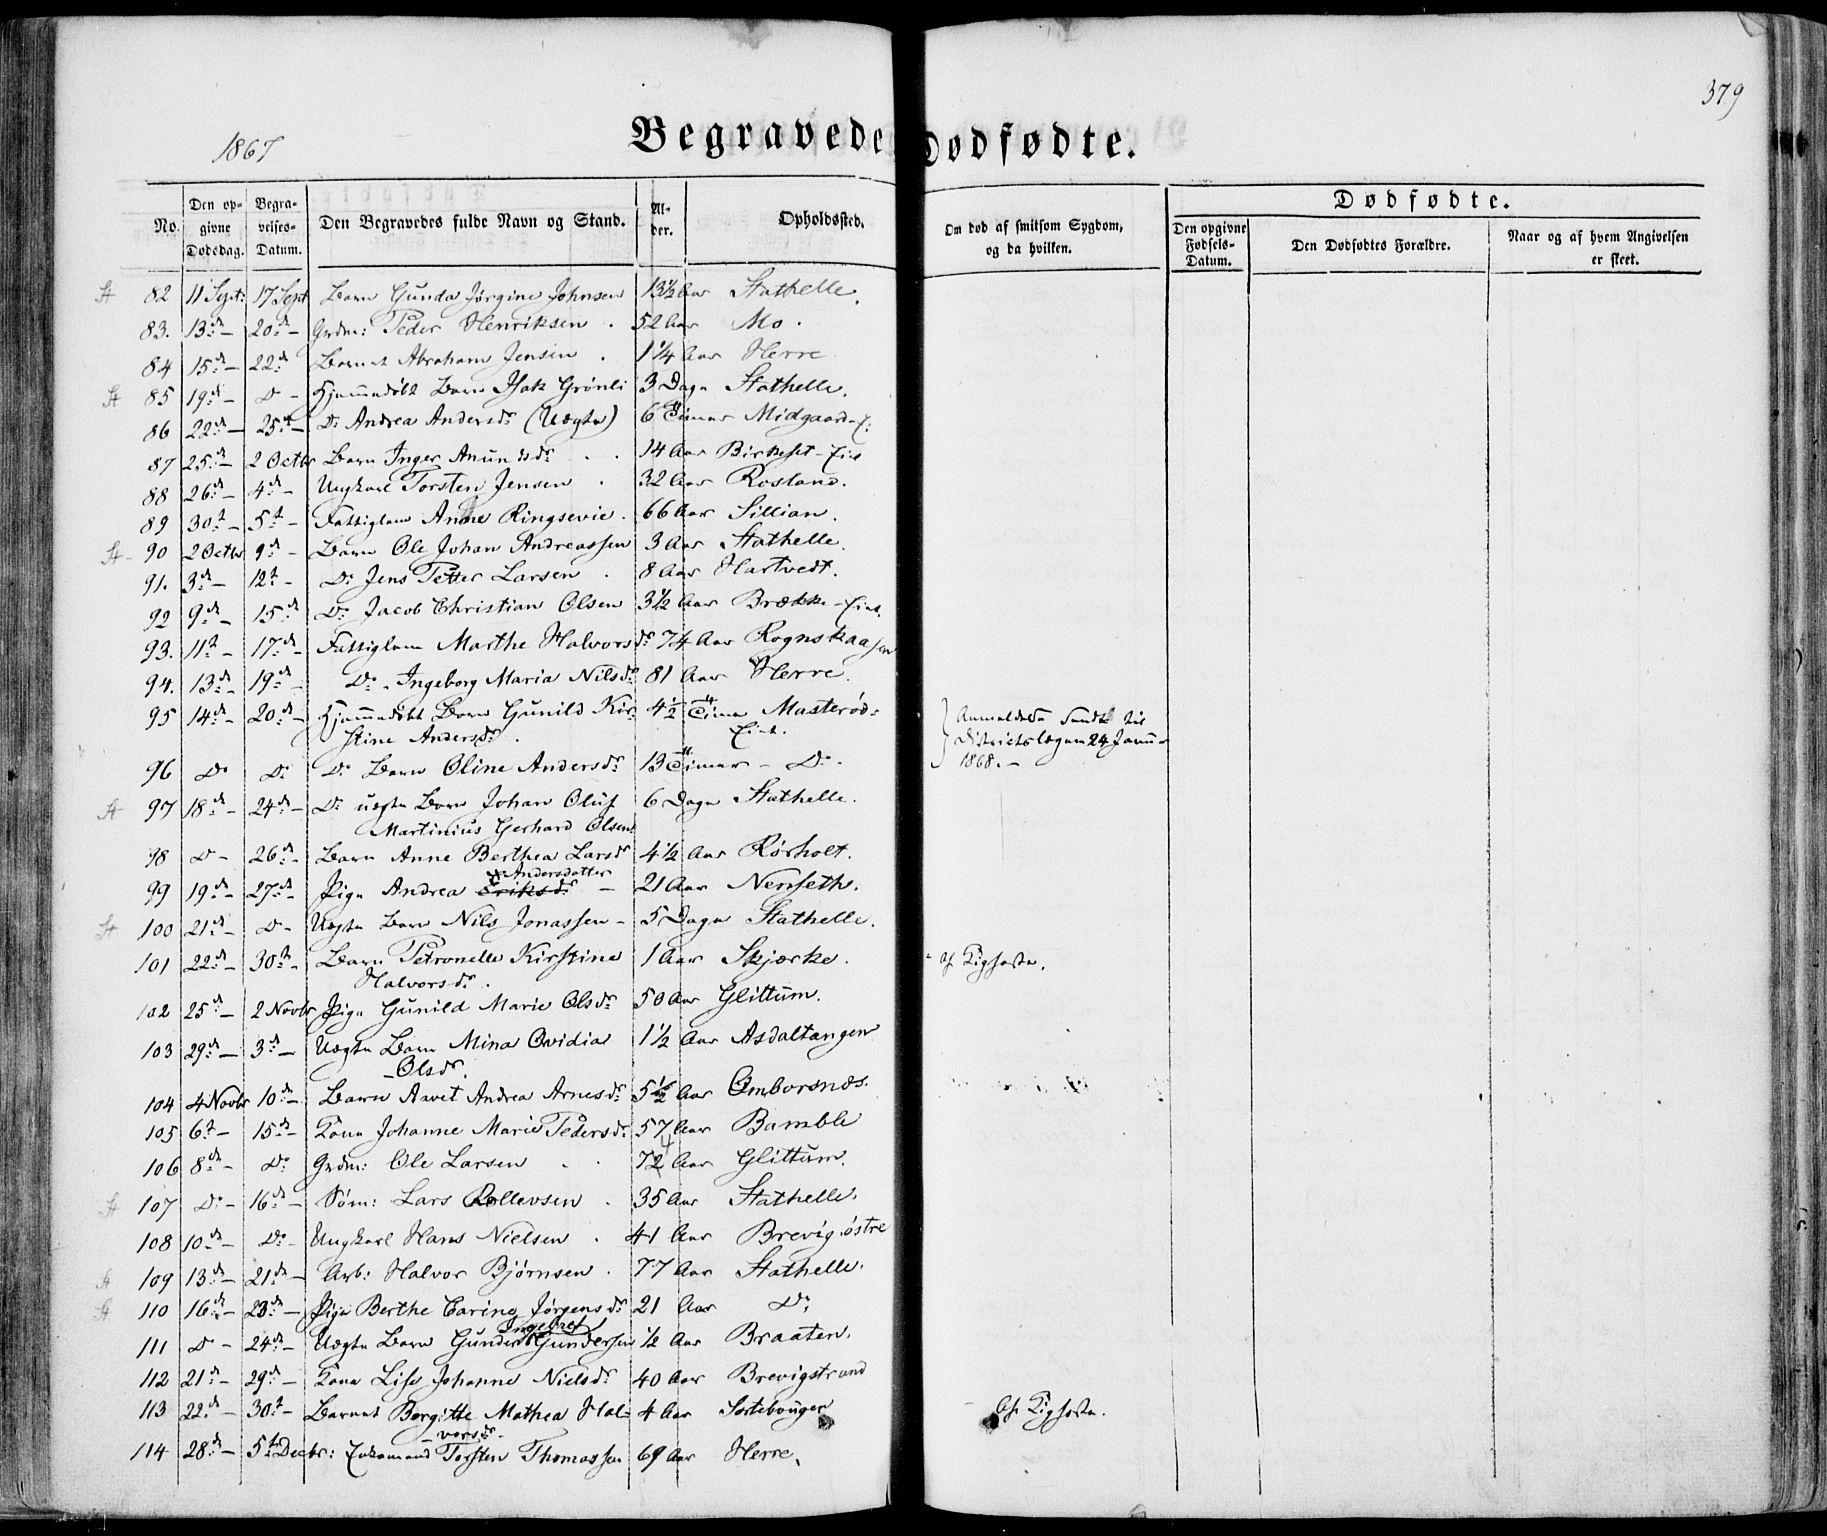 379
1867
Begravede
Dødfødte.
No.
Den opgivne Dødsdag.
Begravelses-Datum.
Den Begravedes fulde Navn og Stand.
Alder.
Opholdssted.
Om død af smitsom Sygdom, og da hvilken.
Dødfødte.
Den opgivne Fødsels-Datum.
Den Dødfødtes Forældre.
Naar og af hvem Angivelsen er skeet.
St 82 11 Sept: 17 Sept Barn Gunda Jørgine Johnsen 13½ Aar Stathelle.
83. 13de – 20de – Grdm: Peder Henriksen . 52 Aar Mo.
84 15de – 22de Barnet Abraham Jensen . 1¼ Aar Herre
St 85 19de – Do – Hjemmedøbt Barn Isak Grønli 3 Dage Stathelle.
86 22de – 25de – Do Andrea Andersdr (Uægte) 6 Timer Midgaard-E:
87 25de – 2 Octbr Barn Inger Anundsdr . . 14 Aar Birkeset-Eie
88 26de – 4de – Ungkarl Torsten Jensen . 32 Aar Rosland.
89 30te – 5te – Fattiglem Anne Ringsevie . 66 Aar Sillian.
St – 90 2 Octbr 9de – Barn Ole Johan Andreassen 3 Aar Stathelle.
91. 3de – 12te – Do Jens Petter Larsen . 8 Aar Hartvedt.
92 9de – 15de Do Jacob Christian Olsen 3½ Aar Brække-Eiet.
93. 11te – 17de – Fattiglem Marthe Halvorsdr 74 Aar Rognskaasen
94. 13de – 19de – Do – Ingeborg Maria Nilsdr 81 Aar Herre.
95 14de – 20de – Hjemmedøbt Barn Gunild Kir- 4½ Time Masterød-
stine Andersdr . Eiet.
Anmeldelse sendt til
Districtslægen 24 Janu-
1868. –
96 Do Do Do Barn Oline Andersdr 13 Timer – Do.
St 97 18de – 24de – Do uægte Barn Johan Oluf 6 Dage Stathelle.
Martinius Gerhard Olsen
98 Do – 26de – Barn Anne Berthea Larsdr 4½ Aar Rørholt.
Andersdatter
99 19de – 27de – Pige Andrea Eriksdr – 21 Aar Nenseth.
St 100 21de – Do – Uægte Barn Nils Jonassen – 5 Dage Stathelle.
101 22de – 30te – Barn Petronelle Kirstine 1 Aar Skjærke. af Kighoste.
Halvorsdr .
102 25de – 2 Novbr Pige Gunild Marie Olsdr 50 Aar Glittum.
103 29de – 3de – Uægte Barn Mina Ovidia 1½ Aar Asdaltangen
– Olsdr.
104 4 Novbr 10de – Barn Aavet Andrea Arnesdr 5½ Aar Omborsnæs.
105 6te – 15de – Kone Johanne Marie Pedersdr 57 Aar Bamble
106 8de – Do Grdm: Ole Larsen . . 72 Aar Glittum.
4
St 107 Do – 16de – Søm: Lars Rollevsen . 35 Aar Stathelle.
108 10de – Do – Ungkarl Hans Nielsen . 41 Aar Brevig østre
St 109 13de – 21de – Arb: Halvor Bjørnsen . 77 Aar Stathelle.
St 110 16de – 23de – Pige Berthe Carine Jørgensdr 21 Aar Do
Ingebret
111 Do – 24de – Uægte Barn Gunder Gundersen ½ Aar Braaten.
112 21de – 29de – Kone Lise Johanne Nielsdr 40 Aar Brevigstrand
113 22de – 30te – Barnet Borgitte Mathea Hal- 4 Aar Af Kighoste.
vorsdr.
114 28de – 5te Decbr: Enkemand Torsten Thomassen 69 Aar Herre.